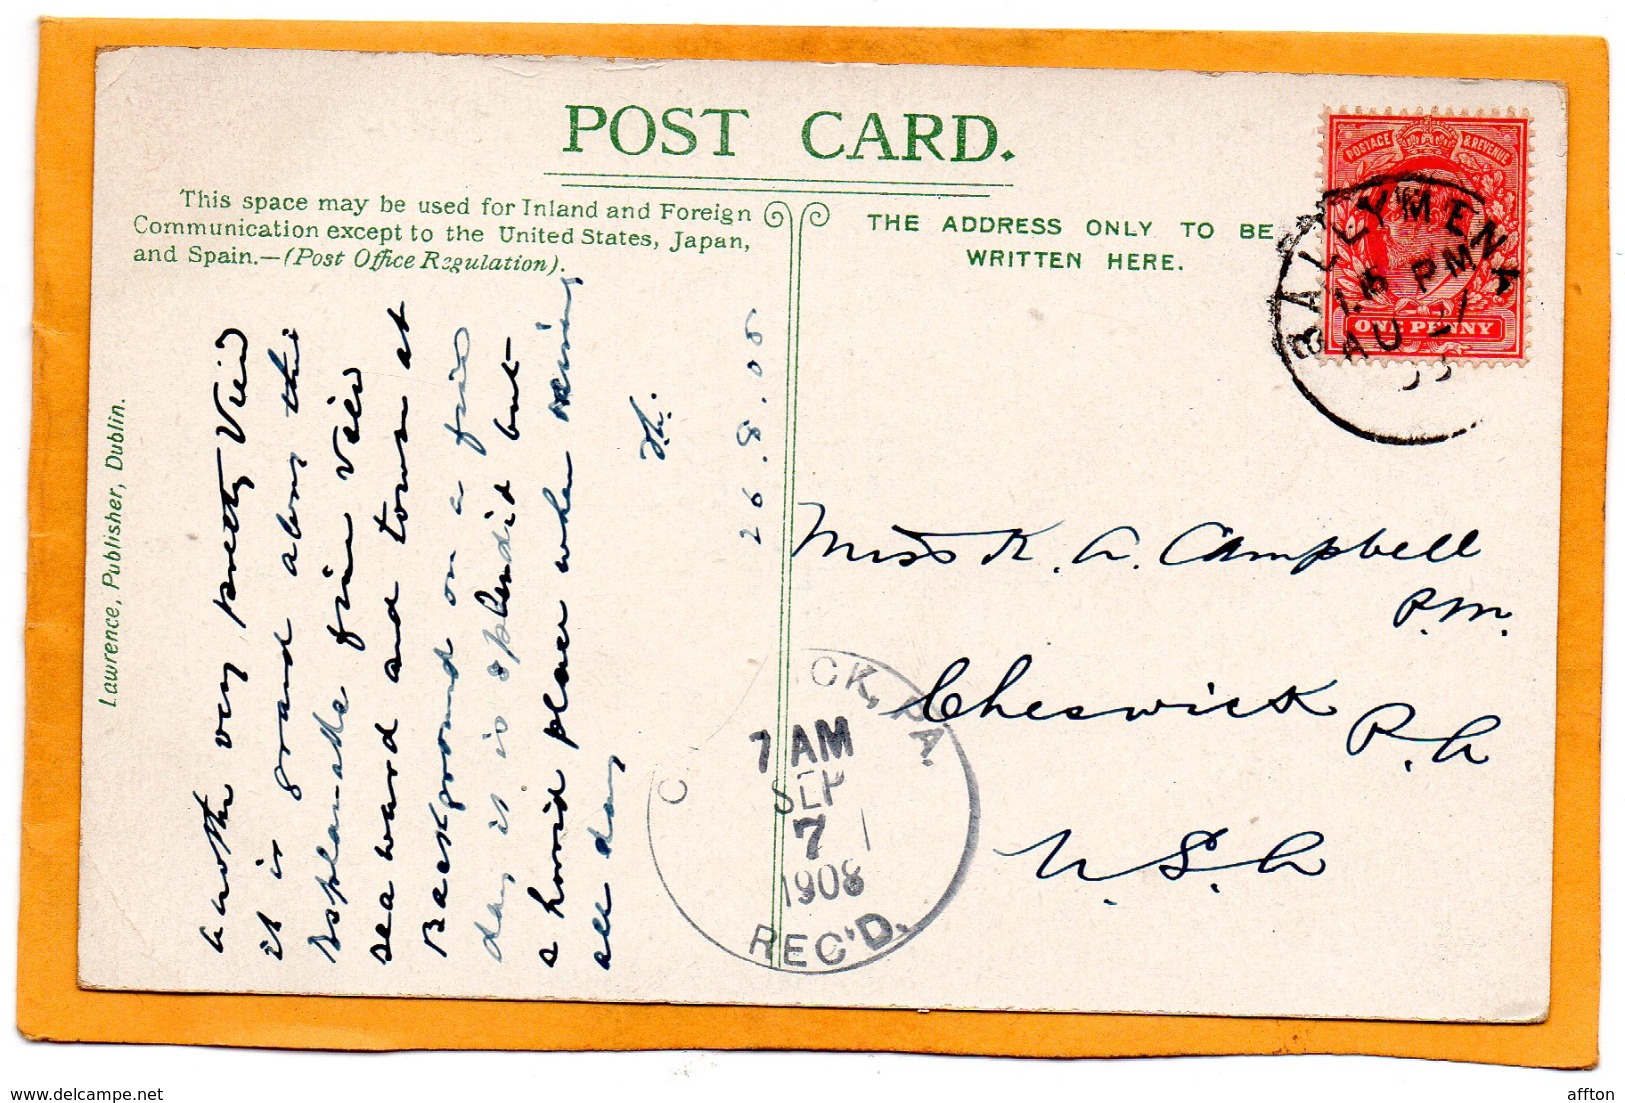 POST CARD.
This space may be used for Inland and Foreign
Communication except to the United States, Japan,
and Spain.—(Post Office Regulation).
THE ADDRESS ONLY TO BE
WRITTEN HERE.
POSTAGE & REVENUE
ONE PENNY
BALLYMENA
1.15 PM
AU 27
Lawrence, Publisher, Dublin.
another very pretty View
it is grand along the
Esplanade fine View
sea ward and town at
Background on a fine
day it is splendid but
a horrid place when raining
all day
26.8.08
Miss K. A. Campbell
P.M.
Cheswick
P.A
U.S.A
CK, PA.
7 AM
SEP
7
1908
REC'D.
delcampe.net
affton